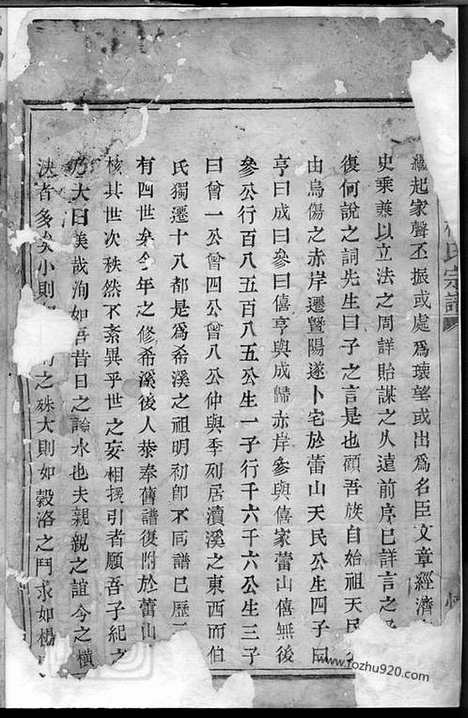 氏宗譜
繼起家聲丕振或處爲瓌望或出爲名臣文章經濟
史乘兼以立法之周詳貽謀之久遠前序已詳言之
復何說之詞先生曰子之言是也顧吾族自始祖天民
由烏傷之赤岸遷暨陽遂卜宅於蕾山天民公生四子曰
亨曰成曰參曰僖亨與成歸赤岸參與僖家蕾山僖無後
參公行百八五百八五公生一子行千六千六公生三子
曰曾一公曾四公曾八公仲與季列居瀆溪之東西而伯
氏獨遷十八都是爲希溪之祖明初即不同譜已歷
有四世矣今年之修希溪後人恭奉舊譜復附於蕾山
核其世次秩然不紊異乎世之妄相援引者願吾子紀之
乃大曰美哉洵如吾昔日之論水也夫親親之誼今之橫
決者多矣小則之殊大則如穀洛之鬥求如楊
www.fozhu920.com